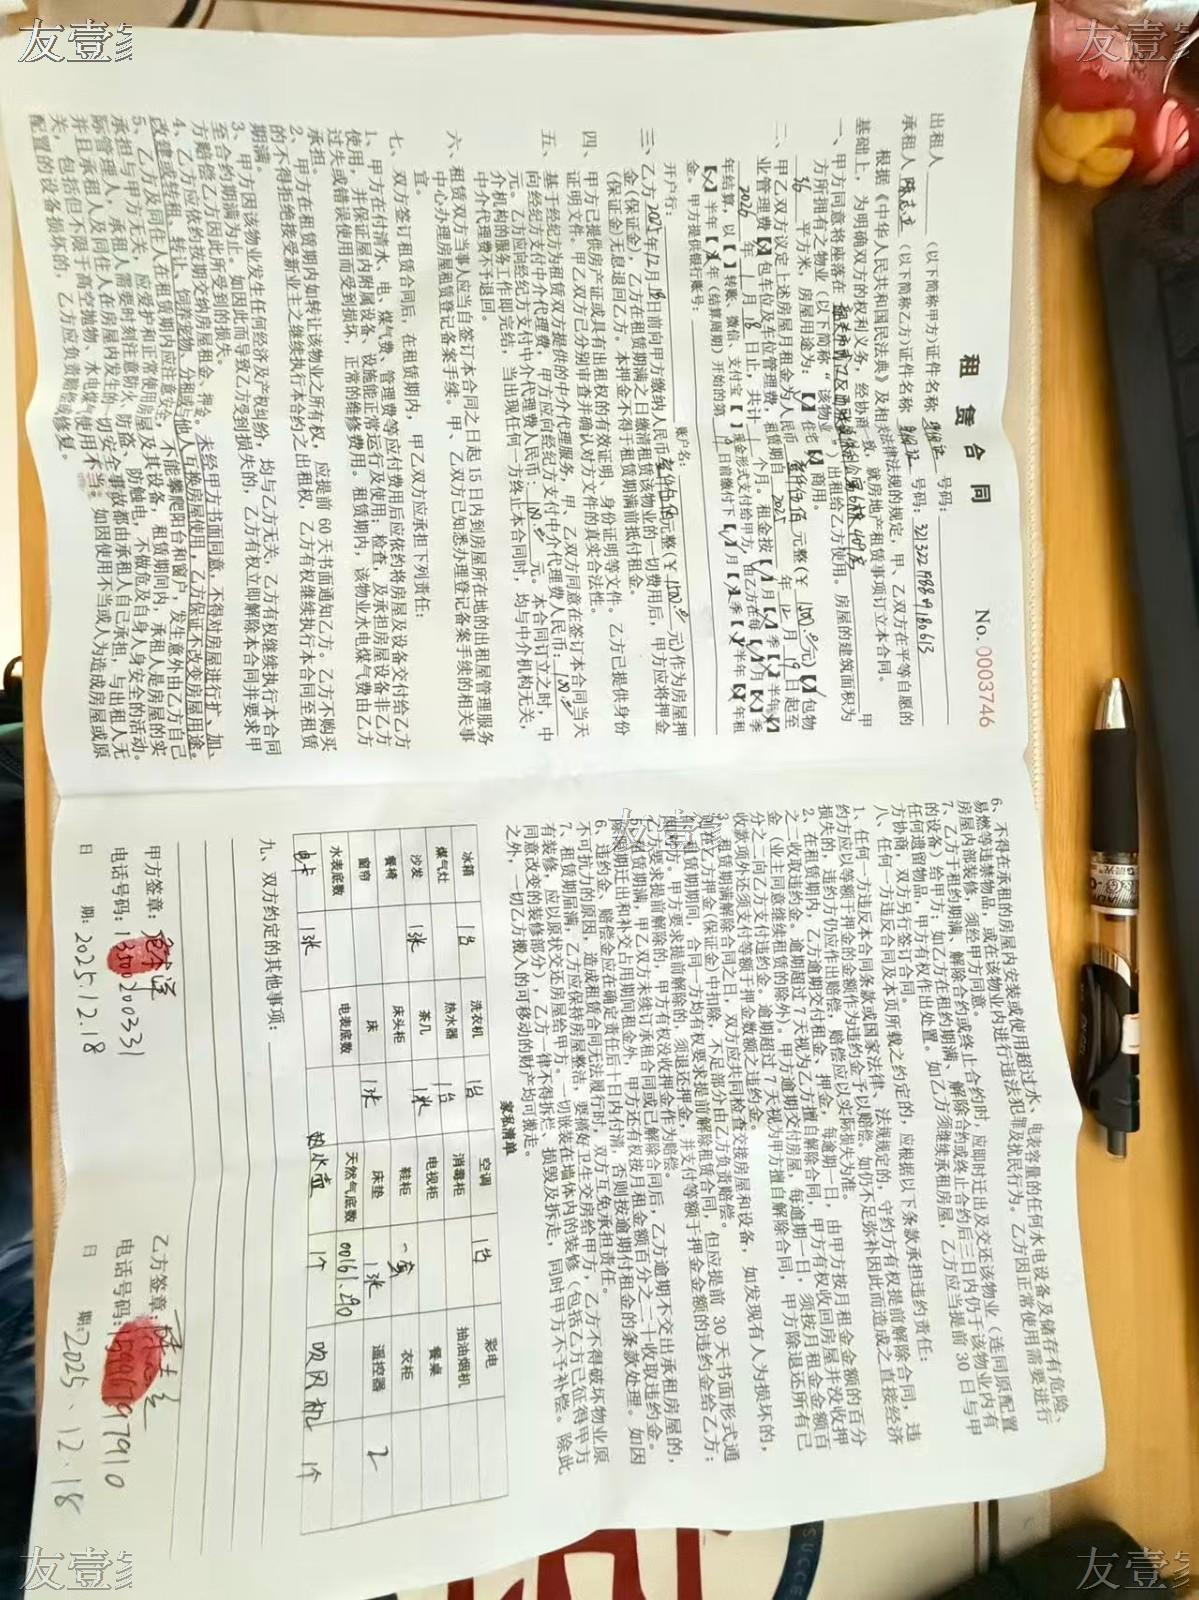 租 赁 合 同
No. 0003746
出租人 (以下简称甲方)证件名称 身份证 号码:
承租人 (以下简称乙方)证件名称 身份证 号码:
根据《中华人民共和国民法典》及相关法律法规的规定，甲、乙双方在平等自愿的
基础上，为明确双方的权利义务，经协商一致，就房地产租赁事项订立本合同。
一、甲方同意将座落在 甲
方所拥有之物业（以下简称“该物业”）出租给乙方使用。房屋的建筑面积为
36 平方米，房屋用途为：【 】住宅【 】商用。
二、甲乙双方议定上述房屋月租金为人民币 壹仟伍佰 元整(￥ 1500.00 元)【 】包物
业管理费【 】包车位及车位管理费，租赁期自 2025 年 12 月 19 日起至
2026 年 1 月 18 日止，共计 1 个月。租金按【 】月【 】季【 】半年【 】
年结算，以【 】转账、微信、支付宝【 】现金形式支付给甲方，由乙方在每【 】月【 】季
【 】半年【 】年（结算周期）开始的第 日前缴付下【 】月【 】季【 】半年【 】年租
金。甲方提供银行账号:
开户行: 账户名:
三、乙方 2025 年 12 月 18 日前向甲方缴纳人民币 壹仟伍佰 元整(￥ 1500.00 元)作为房屋押
金(保证金)，乙方在租赁期满之日缴清租赁该物业的一切费用后，甲方应将押金
(保证金)无息退回乙方。本押金不得于租赁期满前抵付租金。
四、甲方已提供房产证或具有出租权的有效证明、身份证明等文件。乙方已提供身份
证明文件。甲乙双方已分别审查并确认对方文件的真实合法性。
五、基于经纪方为租赁双方提供的中介代理服务，甲、乙双方同意在签订本合同当天
向经纪方支付中介代理费，甲方应向经纪方支付中介代理费人民币: 100.00
元。乙方应向经纪方支付中介代理费人民币: 100.00 元。本合同订立之时，中
介机构的服务工作即完结，当出现任何一方终止本合同时，均与中介机构无关，
中介代理费不予退回。
六、租赁双方当事人应当自签订本合同之日起 15 日内到房屋所在地的出租屋管理服务
中心办理房屋租赁登记备案手续。甲、乙双方已知悉办理登记备案手续的相关事
宜。
七、双方签订租赁合同后，在租赁期内，甲乙双方应承担下列责任:
1、甲方在付清水、电、煤气费、管理费等应付费用后应依约将房屋及设备交付给乙方
使用，并保证屋内附属设备、设施能正常运行及使用；检查，及承担房屋设备非乙方
过失或错误使用而受到损坏，正常的维修费用。租赁期内，该物业水电煤气费由乙方
承担。
2、甲方在租赁期内如转让该物业之所有权，应提前 60 天书面通知乙方。乙方不购买
的不得拒绝接受新业主之继续执行本合约之出租权，乙方有权继续执行本合同至租赁
期满。
3、甲方因该物业发生任何经济及产权纠纷，均与乙方无关，乙方有权继续执行本合同
至合约期满为止。如因此而导致乙方受到损失的，乙方有权立即解除本合同并要求甲
方赔偿乙方因此所受到的损失。
4、乙方应依约按期交纳房屋租金、押金。未经甲方书面同意，不得对房屋进行扩、加、
改建或转租、转让、饲养宠物、分租或与他人互换房屋使用，乙方保证不改变房屋用途。
5、乙方及同住人在租赁期内应注意安全，不能攀爬阳台和窗户，发生意外由乙方自己
承担与甲方无关，应爱护和正常使用房屋及其设备，租赁期间内，承租人是房屋的实
际管理人，承租人需要时刻注意防火、防盗、防触电，不做危及自身人身安全的活动。
并且承租人及同住人在房屋内发生的一切安全事故都由承租人自己承担，与出租人无
关，包括但不限于高空抛物、水电煤气使用不当。如因使用不当或人为造成房屋或原
配置的设备损坏的，乙方应负责赔偿或修复。
6、不得在承租的房屋内安装或使用超过水、电表容量的任何水电设备及储存有危险、
易燃等违禁物品，或在该物业内进行违法犯罪及扰民行为。乙方因正常使用需要进行
房屋内部装修，须经甲方同意。
7、乙方于租约期满、解除合约或终止合约时，应即时迁出及交还该物业（连同原配置
的设备）给甲方；如乙方在租约期满、解除合约或终止合约后三日内仍于该物业内有
任何遗留物品，甲方有权作出处置。如乙方须继续承租房屋，乙方应当提前 30 日与甲
方协商，双方另行签订合同。
八、任何一方违反合同及本页所载之约定的，应根据以下条款承担违约责任:
1、任何一方违反本合同条款或国家法律、法规规定的，守约方有权提前解除合同，违
约方应以等额于押金的金额作为违约金予以赔偿。如仍不足弥补因此而造成之直接经济
损失的，违约方仍应作出赔偿，赔偿应以实际损失为准。
2、在租赁期内，乙方逾期交付租金、押金，每逾期一日，由甲方按月租金金额的百分
之二收取违约金。逾期超过 7 天视为乙方擅自解除合同，甲方有权收回房屋并没收押
金（业主同意继续租赁的除外）。甲方逾期交付房屋，每逾期一日，须按月租金金额百
分之二向乙方支付违约金。逾期超过 7 天视为甲方擅自解除合同，甲方除退还所有已
收款项外还须支付等额于押金数额之违约金。
3、租赁期满解除合同之日，双方应共同检查交接房屋和设备，如发现有人为损坏的，
则在乙方押金(保证金)中扣除，不足部分由乙方负责赔偿。
4、租赁期期间，合同一方均有权要求提前解除租赁合同，但应提前 30 天书面形式通
知对方。甲方要求提前解除的，须退还押金，并支付等额于押金金额的违约金给乙方；
乙方要求提前解除的，甲方有权没收押金作为赔偿。
5、租赁期满，甲乙双方未续订承租合同或已解除合同后，乙方逾期不交出承租房屋的，
除限期迁出和补交占用期间租金外，甲方还有权按月租金额百分之二十收取违约金。
6、违约金、赔偿金应在确定责任后十日内付清，否则按逾期付租金的条款处理。如因
不可抗力的原因，造成租赁合同无法履行时，双方互免承担责任。
7、租赁期届满，乙方应保持房屋整洁，要搞好卫生交房给甲方，乙方不得破坏物业原
有装修，应以原状交还房屋给甲方。一切嵌装在墙体内的装修（包括乙方已征得甲方
同意改变的装修部分），乙方一律不得拆烂、损毁及拆走，同时甲方不予补偿。除此
之外，一切乙方搬入的可移动的财产均可搬走。
家私清单
冰箱 1台 洗衣机 1台 空调 1台 彩电
煤气灶 热水器 1台 消毒柜 抽油烟机
沙发 1张 茶几 1张 电视柜 餐桌
餐椅 床头柜 鞋柜 衣柜
窗帘 床 1张 床垫 1张 遥控器 2
水表底数 电表底数 天然气底数 00161.290
电卡 1张 热水壶 1个 吹风机 1个
九、双方约定的其他事项:
甲方签章: 乙方签章:
电话号码: 电话号码:
日 期: 2025.12.18 日 期: 2025.12.18
友壹家
友壹家
友壹家
友壹家
友壹家